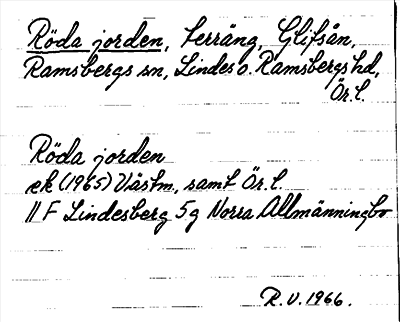 Röda jorden, terräng, Glifsån,
Ramsbergs sn, Lindes o. Ramsbergs hd,
Ör. l.
Röda jorden
ek (1965) Västm, samt Ör. l.
11 F Lindesberg 5g Norra Allmänningbo
R.V. 1966.